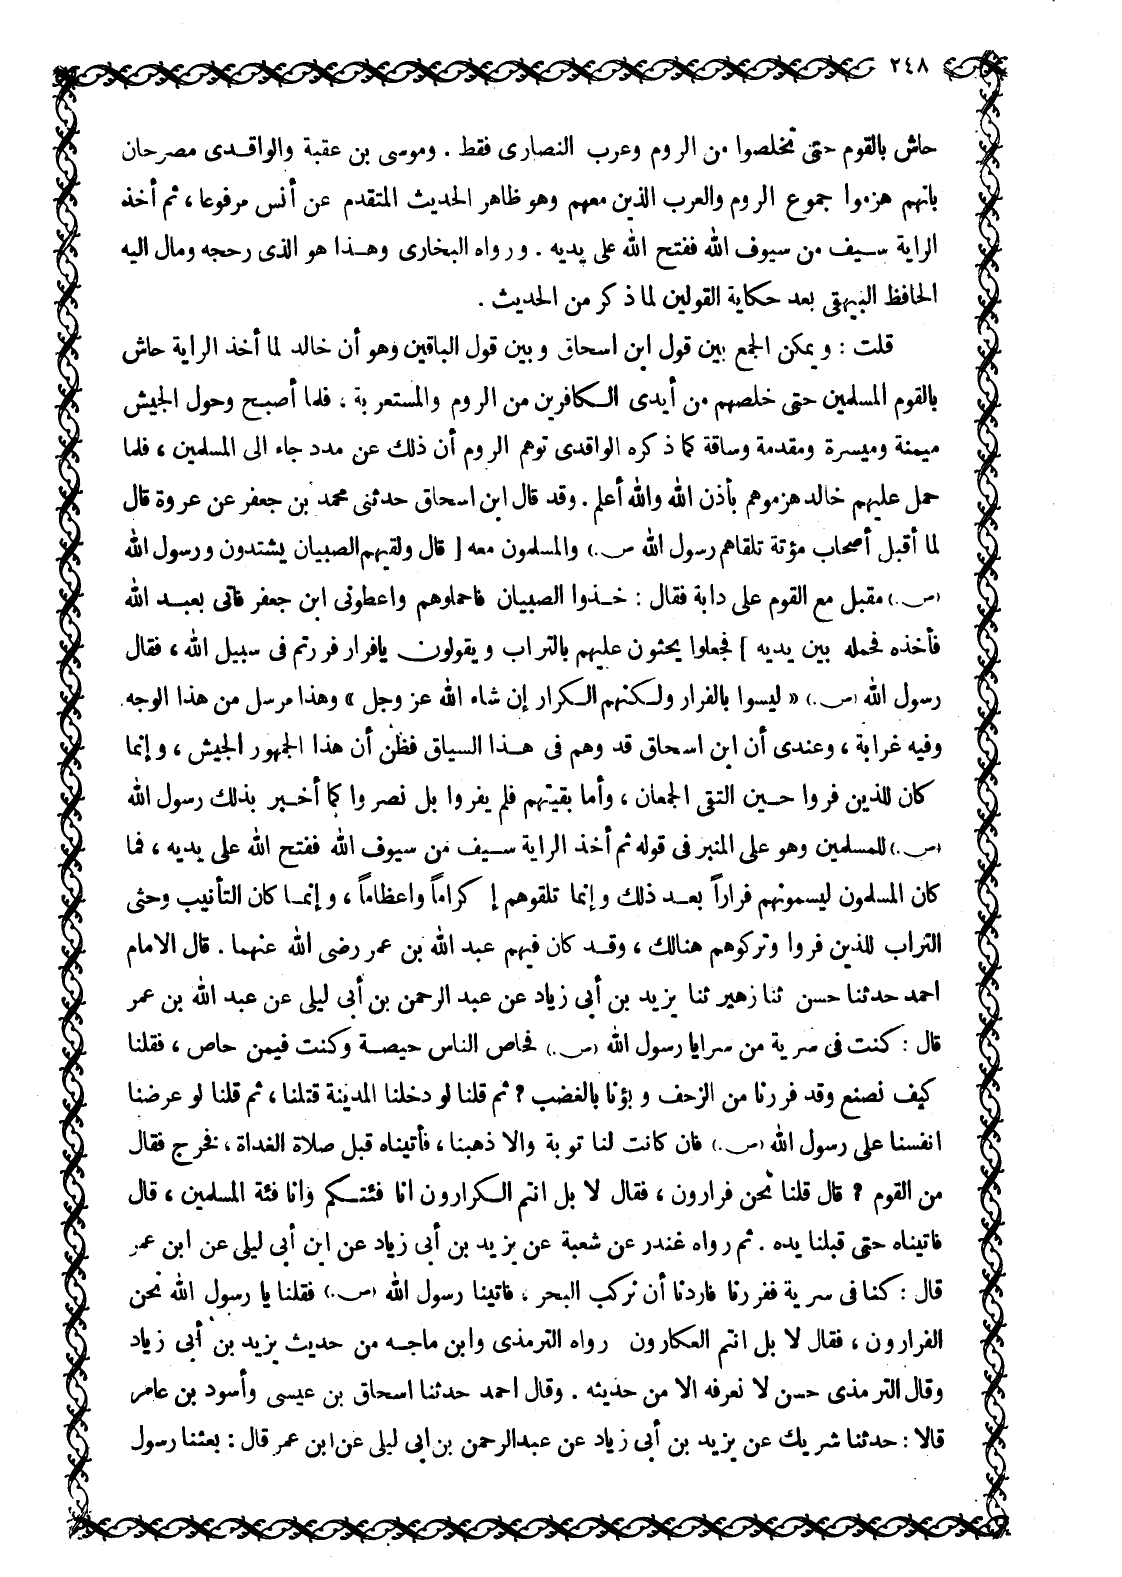 ٢٤٨
حاش بالقوم حتى تخلصوا من الروم وعرب النصارى فقط . وموسى بن عقبة والواقدى مصرحان
بانهم هزموا جموع الروم والعرب الذين معهم وهو ظاهر الحديث المتقدم عن أنس مرفوعا ، ثم أخذ
الراية سيف من سيوف الله ففتح الله على يديه . ورواه البخارى وهذا هو الذى رحجه ومال اليه
الحافظ البيهقى بعد حكاية القولين لما ذكر من الحديث .
قلت : ويمكن الجمع بين قول ابن اسحاق وبين قول الباقين وهو أن خالد لما أخذ الراية حاش
بالقوم المسلمين حتى خلصهم من أيدى الكافرين من الروم والمستعربة ، فلما أصبح وحول الجيش
ميمنة وميسرة ومقدمة وساقة كما ذكره الواقدى توهم الروم أن ذلك عن مدد جاء الى المسلمين ، فلما
حمل عليهم خالد هزموهم بأذن الله والله أعلم . وقد قال ابن اسحاق حدثنى محمد بن جعفر عن عروة قال
لما أقبل أصحاب مؤتة تلقاهم رسول الله (ص.) والمسلمون معه [ قال ولقيهم الصبيان يشتدون ورسول الله
(ص.) مقبل مع القوم على دابة فقال : خذوا الصبيان فاحملوهم واعطونى ابن جعفر فاتى بعبد الله
فأخذه فحمله بين يديه ] فجعلوا يحثون عليهم بالتراب ويقولون يافرار فررتم فى سبيل الله ، فقال
رسول الله (ص.) « ليسوا بالفرار ولكنهم الكرار إن شاء الله عز وجل » وهذا مرسل من هذا الوجه
وفيه غرابة ، وعندى أن ابن اسحاق قد وهم فى هذا السياق فظن أن هذا الجمهور الجيش ، وإنما
كان للذين فروا حين التقى الجمعان ، وأما بقيتهم فلم يفروا بل نصروا كما أخبر بذلك رسول الله
(ص.) للمسلمين وهو على المنبر فى قوله ثم أخذ الراية سيف من سيوف الله ففتح الله على يديه ، فما
كان المسلمون ليسمونهم فراراً بعد ذلك وإنما تلقوهم إكراماً واعظاماً ، وإنما كان التأنيب وحثى
التراب للذين فروا وتركوهم هنالك ، وقد كان فيهم عبد الله بن عمر رضى الله عنهما . قال الامام
احمد حدثنا حسن ثنا زهير ثنا يزيد بن أبى زياد عن عبد الرحمن بن أبى ليلى عن عبد الله بن عمر
قال : كنت فى سرية من سرايا رسول الله (ص.) فحاص الناس حيصة وكنت فيمن حاص ، فقلنا
كيف نصنع وقد فررنا من الزحف وبؤنا بالغضب ? ثم قلنا لو دخلنا المدينة قتلنا ، ثم قلنا لو عرضنا
انفسنا على رسول الله (ص.) فان كانت لنا توبة والا ذهبنا ، فأتيناه قبل صلاة الغداة ، فخرج فقال
من القوم ? قال قلنا نحن فرارون ، فقال لا بل انتم الكرارون انا فئتكم وانا فئة المسلمين ، قال
فاتيناه حتى قبلنا يده . ثم رواه غندر عن شعبة عن يزيد بن أبى زياد عن ابن أبى ليلى عن ابن عمر
قال : كنا فى سرية ففررنا فاردنا أن نركب البحر ، فاتينا رسول الله (ص.) فقلنا يا رسول الله نحن
الفرارون ، فقال لا بل انتم العكارون رواه الترمذى وابن ماجه من حديث يزيد بن أبى زياد
وقال الترمذى حسن لا نعرفه الا من حديثه . وقال احمد حدثنا اسحاق بن عيسى وأسود بن عامر
قالا : حدثنا شريك عن يزيد بن أبى زياد عن عبدالرحمن بن ابى ليلى عن ابن عمر قال : بعثنا رسول